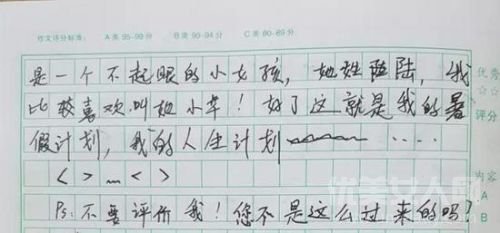 作文评分标准： A类95-99分 B类90-94分 C类80-89分
是一个不起眼的小女孩，她姓陆，我
比较喜欢叫她小草！好了这就是我的暑
假计划，我的人生计划 ....
< > … < >
Ps:不要评价我！您不是这么过来的吗？
优秀
☆☆
评分
内容
A
B
优美女人网